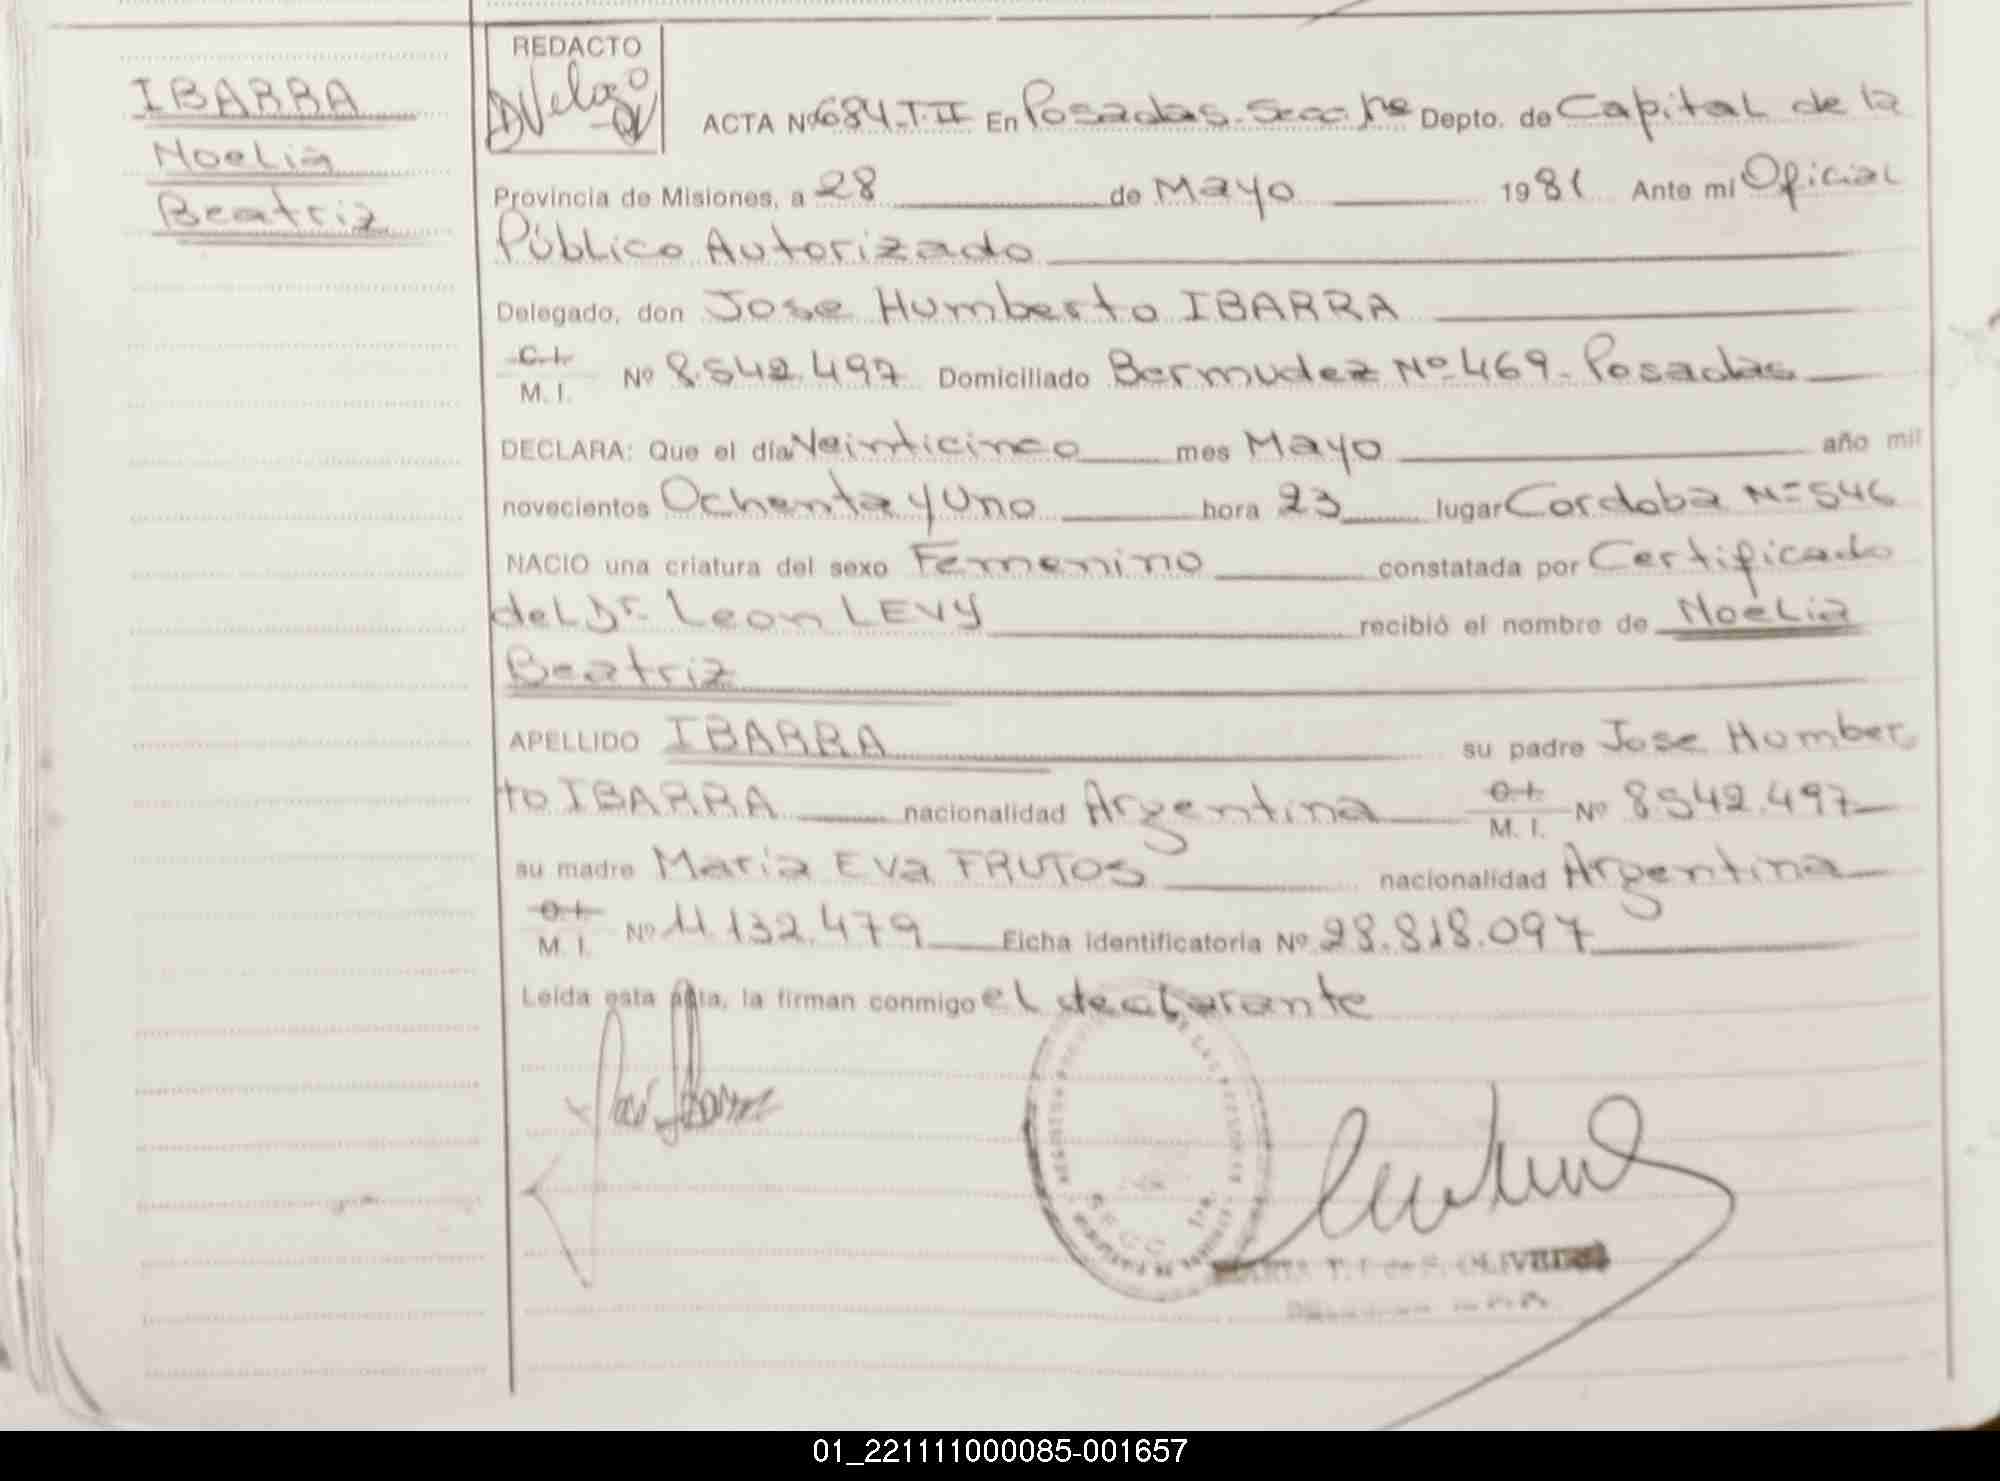 IBARRA
Noelia
Beatriz
REDACTO
ACTA Nº 684-T-II En Posadas-Secc. 1ra Depto. de Capital de la
Provincia de Misiones, a 28 de Mayo 1981 Ante mi Oficial
Público Autorizado
Delegado, don Jose Humberto IBARRA
C.I.
M. I. Nº 8.542.497 Domiciliado Bermudez Nº 469-Posadas
DECLARA: Que el día Veinticinco mes Mayo año mil
novecientos Ochenta y Uno hora 23 lugar Cordoba Nº 546
NACIO una criatura del sexo Femenino constatada por Certificado
del Dr. Leon LEVY recibió el nombre de Noelia
Beatriz
APELLIDO IBARRA su padre Jose Humber
to IBARRA nacionalidad Argentina C.I.
M. I. Nº 8.542.497
su madre Maria Eva FRUTOS nacionalidad Argentina
C.I.
M. I. Nº 11.132.479 Ficha identificatoria Nº 28.818.097
Leída esta acta, la firman conmigo el declarante
SECC. 1ra.
OLIVERA
01_221111000085-001657